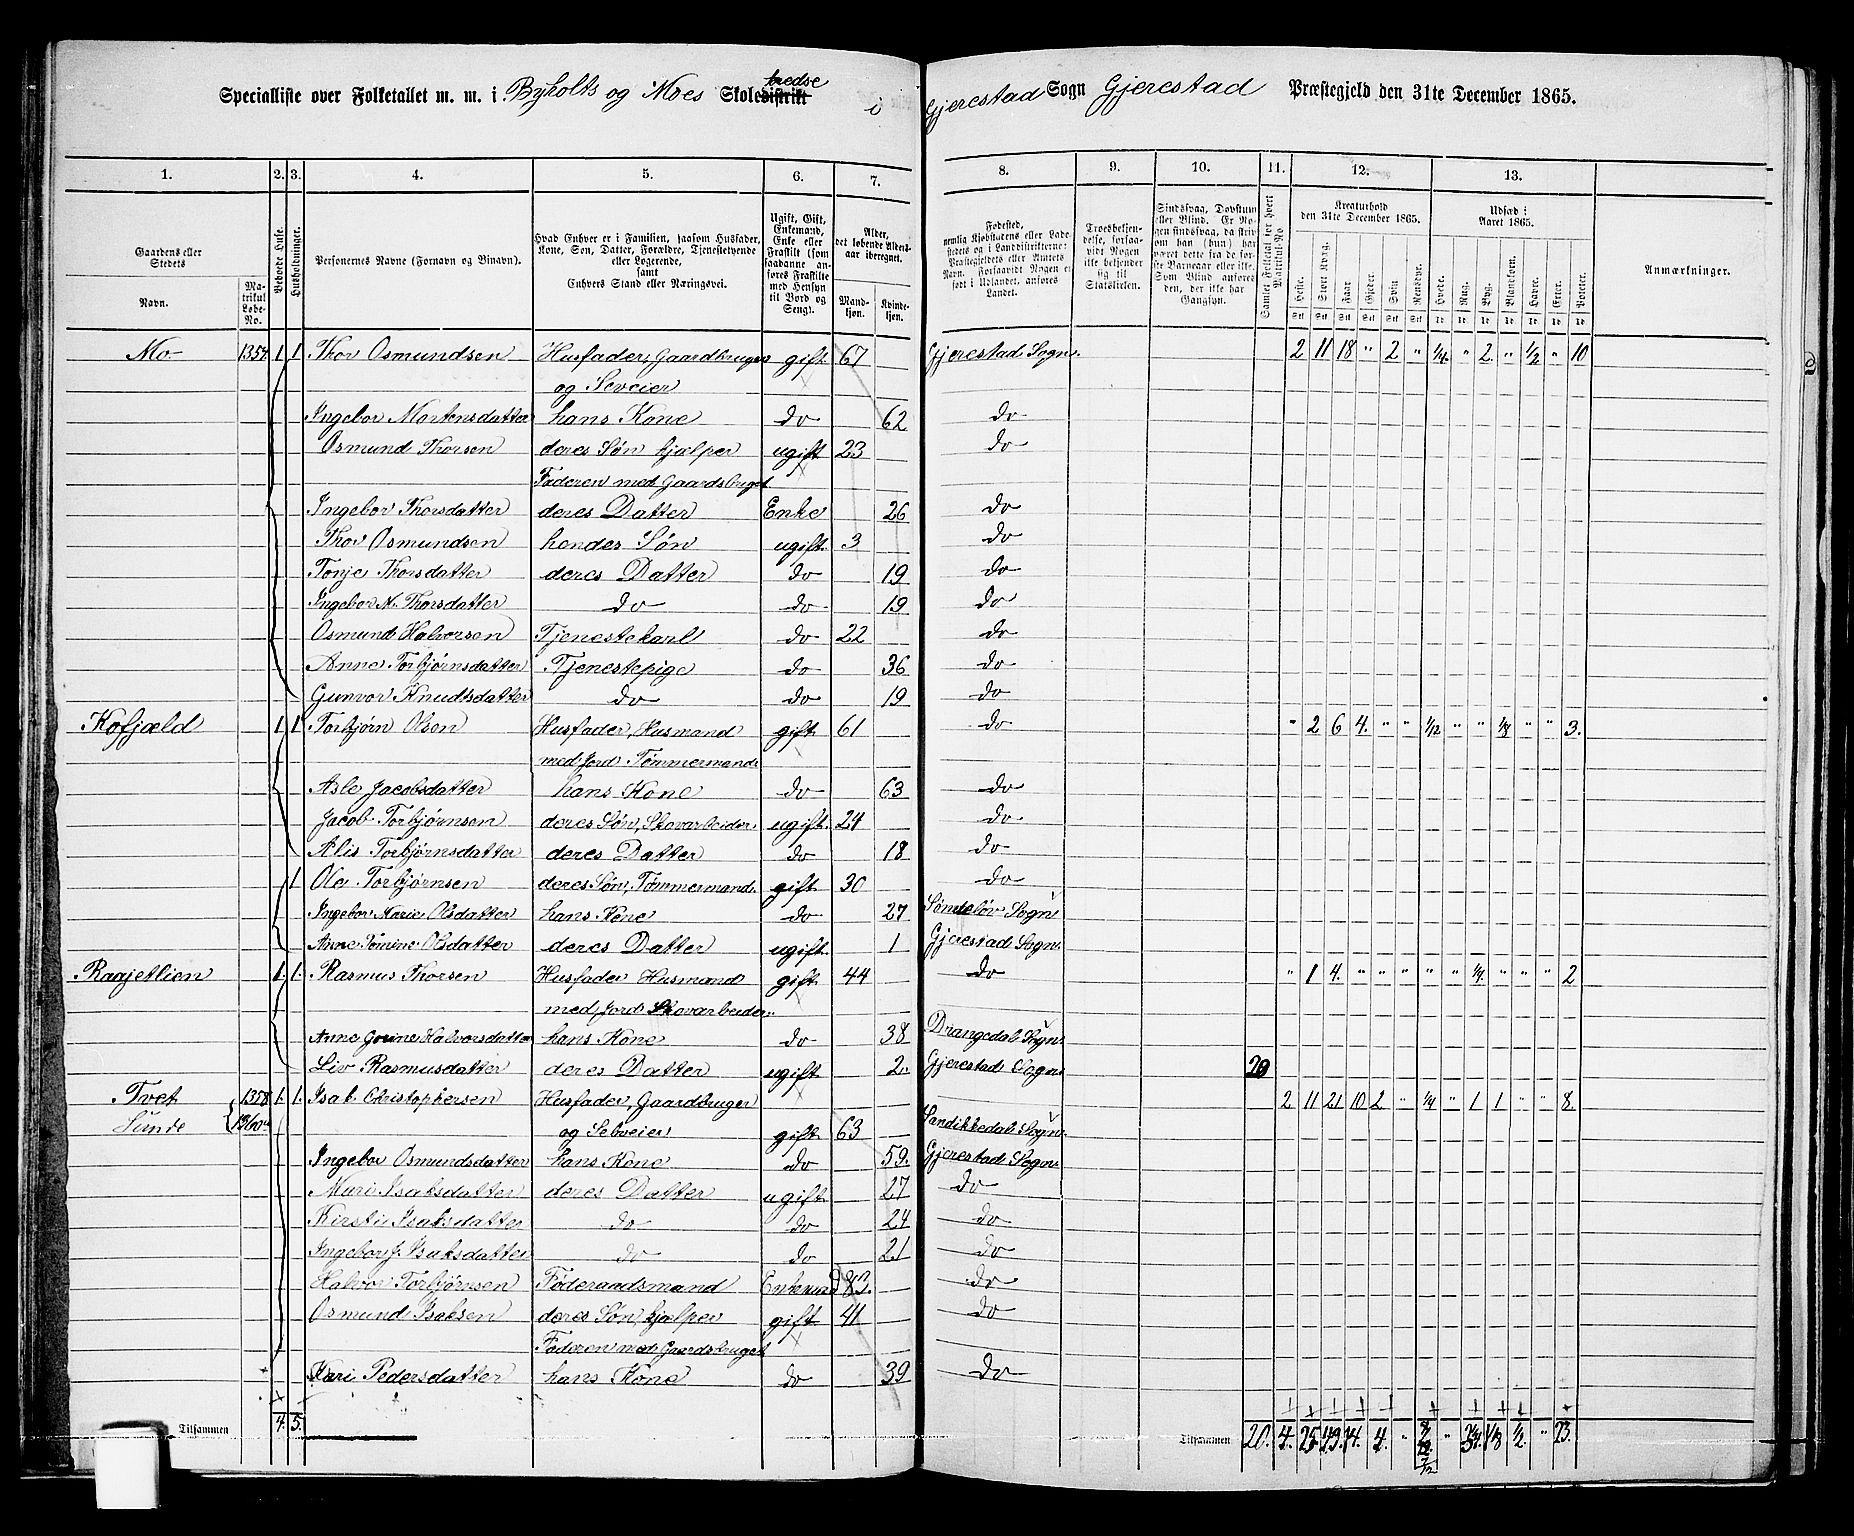 Specialliste over Folketallet m. m. i Byholts og Moes Skoledistrikt kredse i Gjerestad Sogn Gjerestad Præstegjeld den 31te December 1865.
1. 2. 3. 4. 5. 6. 7. 8. 9. 10. 11. 12. 13.
Gaardens eller Stedets
Navn.
Matrikul Løbe-No.
Beboede Huse.
Husholdninger.
Personernes Navne (Fornavn og Binavn).
Hvad Enhver er i Familien, saasom Husfader, Kone, Søn, Datter, Forældre, Tjenestetyende eller Logerende, samt Enhvers Stand eller Næringsvei.
Ugift, Gift, Enkemand, Enke eller Fraskilt (som saadanne anføres Fraskilte med Hensyn til Bord og Seng).
Alder, det løbende Aldersaar iberegnet.
Mandkjøn. Kvindekjøn.
Fødested, nemlig Kjøbstadens eller Ladestedets og i Landdistrikterne: Præstegjeldets eller Amtets Navn. Forsaavidt Nogen er født i Udlandet, anføres Landet.
Troesbekjendelse, forsaavidt Nogen ikke bekjender sig til Statskirken.
Sindssvag, Døvstum eller Blind. Er Nogen sindssvag, da skrives om han (hun) har været dette fra de første Barneaar eller ikke. Som Blind anføres den, der ikke har Gangsyn.
Samlet Folketal for hvert Matrikul-No.
Kreaturhold den 31te December 1865.
Heste. Stort Kvæg. Faar. Gjeder. Svin. Rensdyr.
Udsæd i Aaret 1865.
Hvede. Rug. Byg. Blandkorn. Havre. Erter. Poteter.
Anmærkninger.
Mo 135 1. 1. Thor Osmundsen Husfader, Gaardbruger gift 67 Gjerestad Sogn. 2 11 18 " 2 " 1/4 " 2. " 1/2 " 10
og Selveier
Ingebor Mortensdatter hans Kone do 62 do
Osmund Thorsen deres Søn hjælper ugift 23 do
Faderen med Gaardsbruget
Ingebor Thorsdatter deres Datter Enke 26 do
Thor Osmundsen hendes Søn ugift 3 do
Tonje Thorsdatter deres Datter do 19 do
Ingebor N. Thorsdatter do do 19 do
Osmund Halvorsen Tjenestekarl do 22 do
Anne Torbjørnsdatter Tjenestepige do 36 do
Gunvor Knudtsdatter do do 19 do
Kofjæld 1 1 Torbjørn Olsen Husfader, Husmand gift 61 do " 2 6 4. " " 1/12 " " 1/8 " " 3.
med Jord Tømmermand
Asle Jacobsdatter hans Kone do 63 do
Jacob Torbjørnsen deres Søn, Skovarbeider ugift 24 do
Alis Torbjørnsdatter deres Datter do 18 do
1 Ole Torbjørnsen deres Søn, Tømmermand gift 30 do
Ingebor Marie Olsdatter hans Kone do 27 Søndeløv Sogn
Anne Tomine Olsdatter deres Datter ugift 1 Gjerestad Sogn.
Raajetlien 1. 1. Rasmus Thorsen Husfader Husmand gift 44 do " 1 4. " " " " " 1/4 " " " 2
med Jord Skovarbeider
Anne Gorine Halvorsdatter hans Kone do 38 Drangedal Sogn.
Liv Rasmusdatter deres Datter ugift 2. Gjerestad Sogn. 20
Tvet 1358 1. 1. Isak Christophersen Husfader, Gaardbruger 2 11 21 10 2 " 1/4 " 1 1 " " 8.
Sunde 1360 og Selveier gift 63 Sandikkedal Sogn.
Ingebor Osmundsdatter hans Kone do 59. Gjerestad Sogn.
Mari Isaksdatter deres Datter ugift 27 do
Kirsti Isaksdatter do do 24 do
Ingebor J. Isaksdatter do do 21 do
Halvor Torbjørnsen Føderaadsmand Enkemand 83. do
Osmund Isaksen deres Søn hjælper gift 41 do
Faderen med Gaardsbruget
Kari Pedersdatter hans Kone do 39 do
Tilsammen 4. 5. Tilsammen 20. 4. 25 49. 14. 4. " 7/12 " 3 1/4. 1 1/8 1/2. " 23.